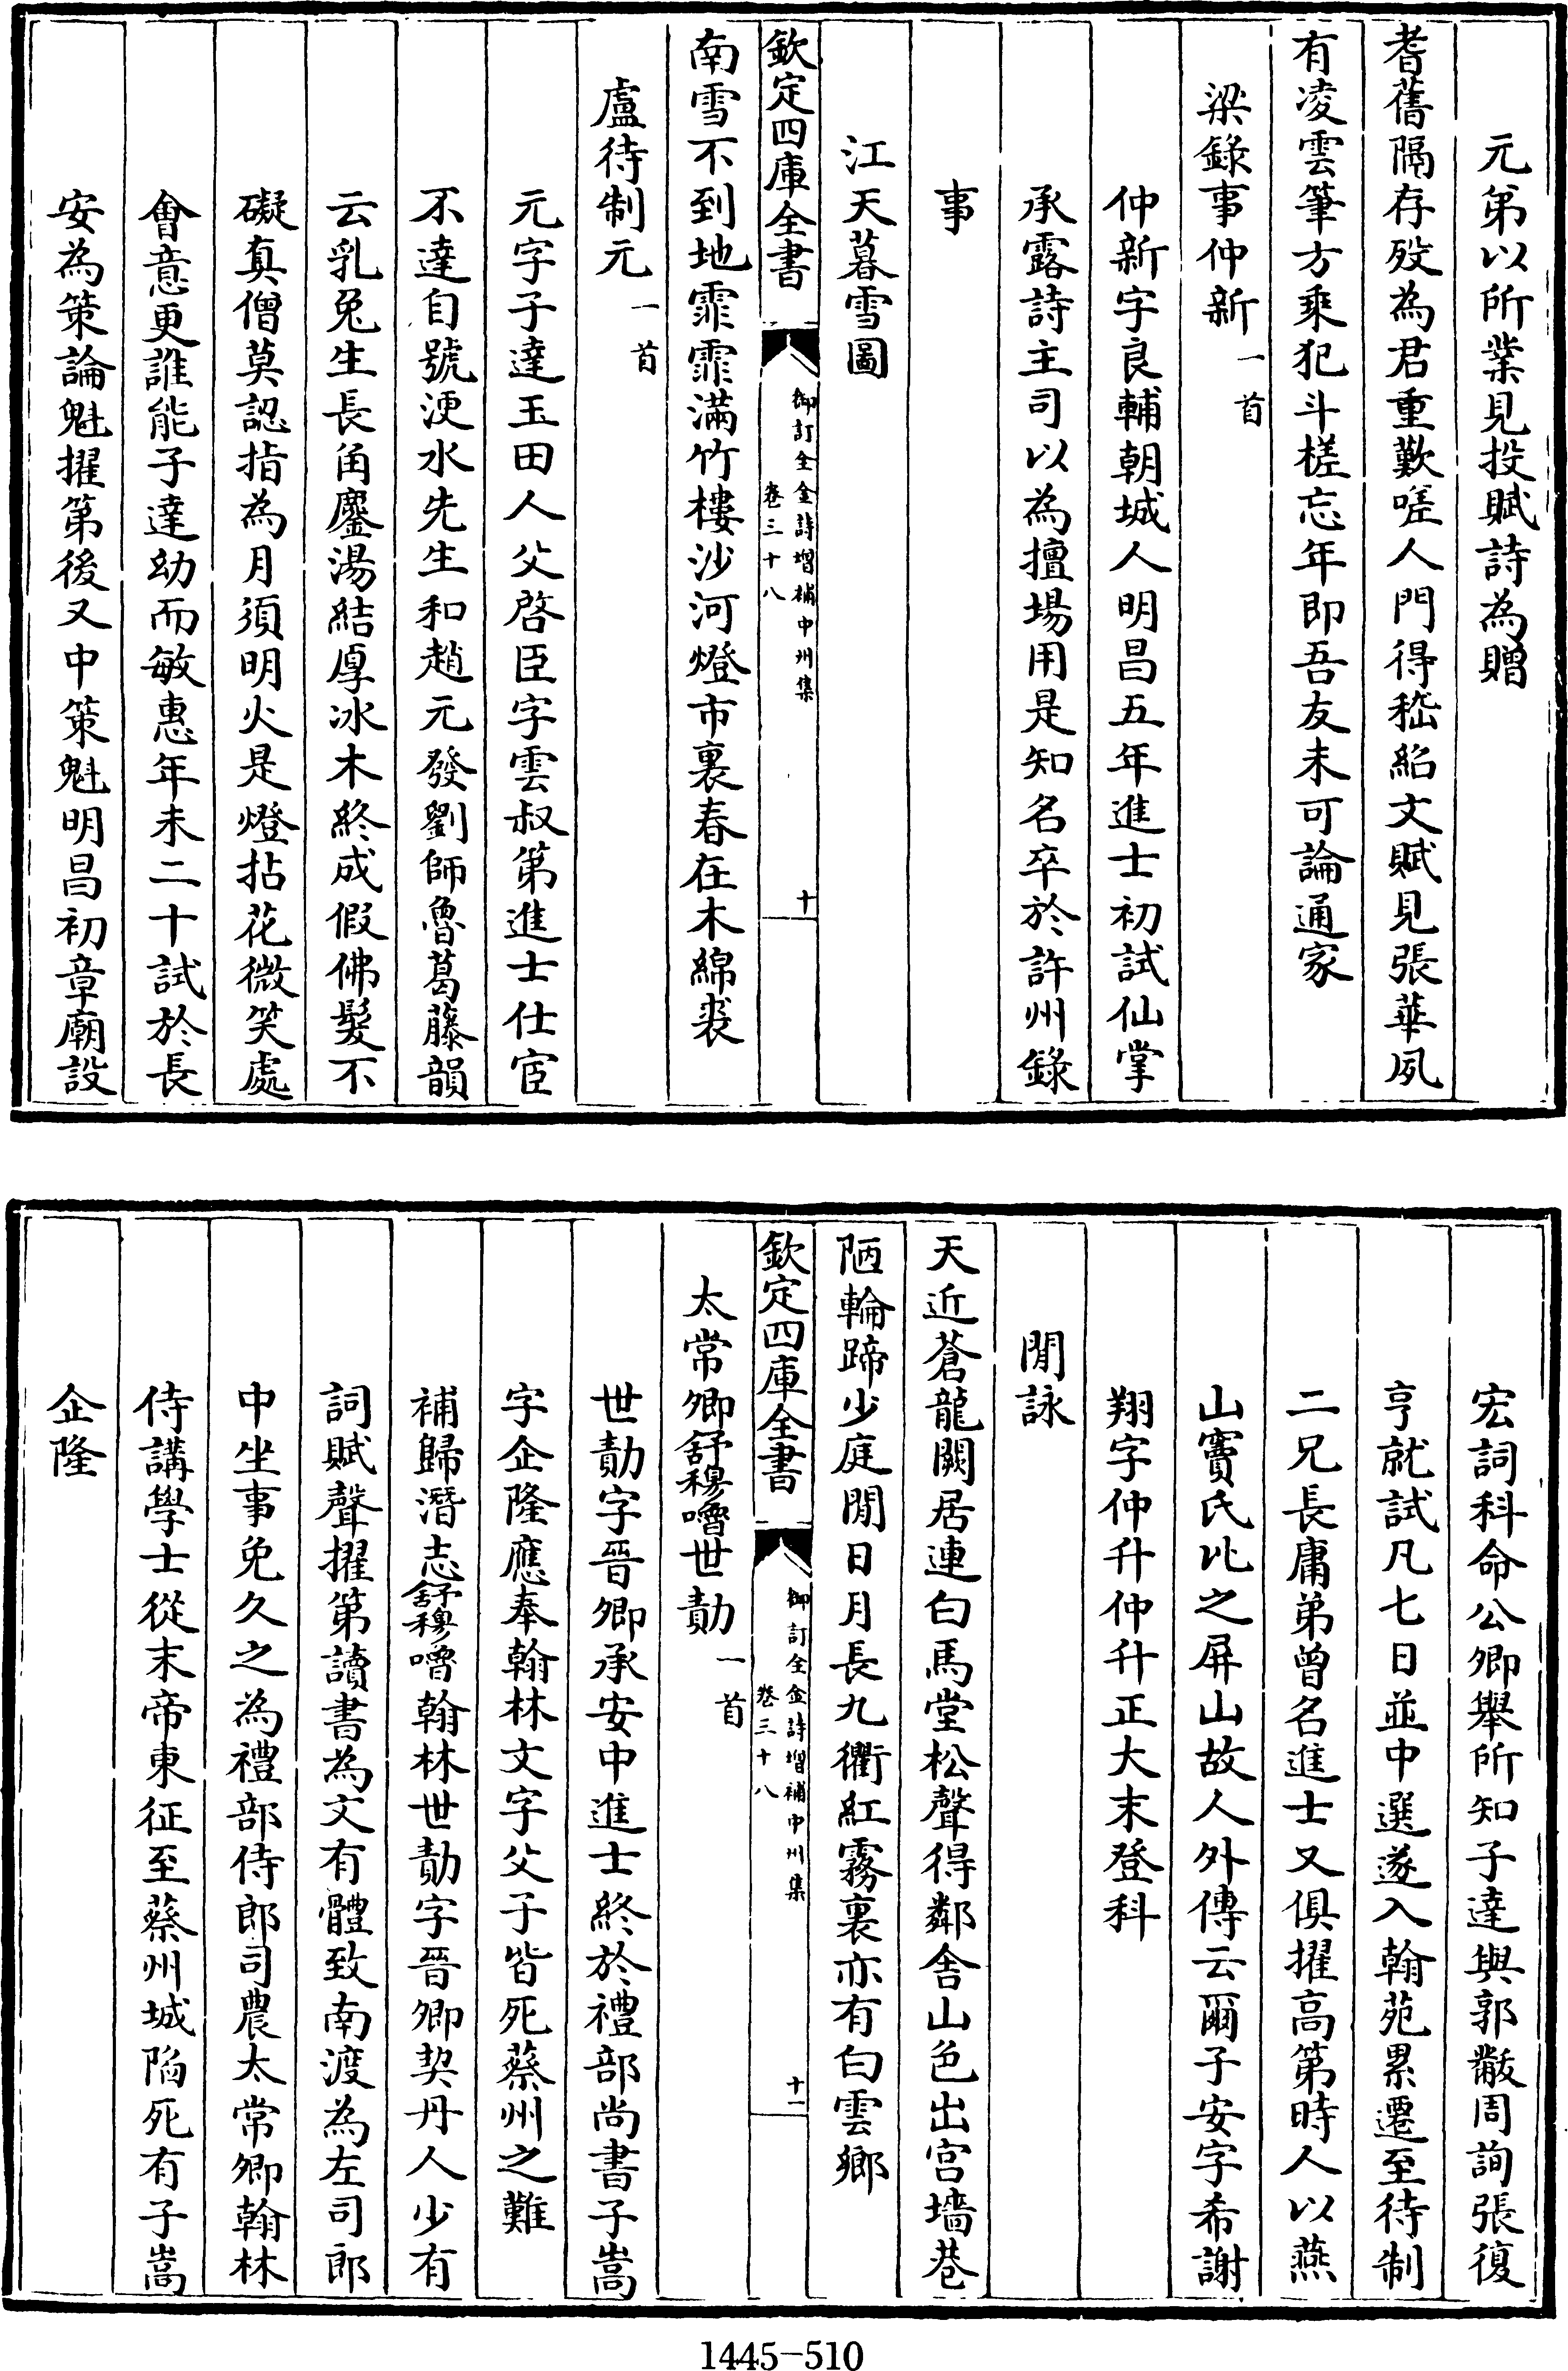 元弟以所業見投賦詩為贈
耆舊隔存歿為君重歎嗟人門得嵇紹文賦見張華夙
有凌雲筆方乘犯斗槎忘年即吾友未可論通家
梁錄事仲新一首
仲新字良輔朝城人明昌五年進士初試仙掌
承露詩主司以為擅場用是知名卒於許州錄
事
江天暮雪圖
欽定四庫全書
御訂全金詩增補中州集
卷三十八
十
南雪不到地霏霏滿竹樓沙河燈市裏春在木綿裘
盧待制元一首
元字子達玉田人父啓臣字雲叔第進士仕宦
不達自號浭水先生和趙元發劉師魯葛藤韻
云乳兔生長角鏖湯結厚冰木終成假佛髮不
礙真僧莫認指為月須明火是燈拈花微笑處
會意更誰能子達幼而敏惠年未二十試於長
安為策論魁擢第後又中策魁明昌初章廟設
宏詞科命公卿舉所知子達與郭黻周詢張復
亨就試凡七日並中選遂入翰苑累遷至待制
二兄長庸弟曾名進士又俱擢高第時人以燕
山竇氏比之屏山故人外傳云爾子安字希謝
翔字仲升仲升正大末登科
閒詠
天近蒼龍闕居連白馬堂松聲得鄰舍山色出宫墻巷
陋輪蹄少庭閒日月長九衢紅霧裏亦有白雲鄉
欽定四庫全書
御訂全金詩增補中州集
卷三十八
十一
太常卿舒穆嚕世勣一首
世勣字晉卿承安中進士終於禮部尚書子嵩
字企隆應奉翰林文字父子皆死蔡州之難
補歸潛志舒穆嚕翰林世勣字晉卿契丹人少有
詞賦聲擢第讀書為文有體致南渡為左司郎
中坐事免久之為禮部侍郎司農太常卿翰林
侍講學士從末帝東征至蔡州城陷死有子嵩
企隆
1445-510